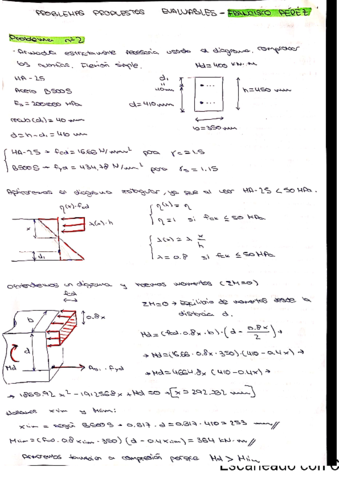 PROBLEMAS PROPUESTOS EVALUABLES - FRANCISCO PÉREZ
Problema nº2
· Armadura estrictamente necesaria usando el diagrama, comprobar
los cuantías. Flexión simple. Md = 400 kN·m.
HA-25
Acero B500S
Es = 200000 MPa
recub (d1) = 40 mm
d = h - d1 = 410 mm
d1 = 40mm
d = 410mm
h = 450 mm
b = 350 mm
HA-25 → Fcd = 16.66 N/mm² para γc = 1.5
B500S → Fyd = 434.78 N/mm² para γs = 1.15
Aplicaremos el diagrama rectangular, ya que al usar HA-25 < 50 MPa.
η(x) · Fcd
λ(x)·h
x
d1
η(x) = η
η = 1 si fck ≤ 50 MPa
λ(x) = λ x/h
λ = 0.8 si fck ≤ 50 MPa
Obtendremos un diagrama y momentos (ΣM=0)
fcd
0.8x
b
d
Md
As · Fyd
ΣM=0 → Equilibrio de momentos desde la
distancia d.
Md = (fcd · 0.8x · b) · (d - 0.8x/2) →
→ Md = (16.66 · 0.8x · 350) (410 - 0.4x) →
→ Md = 4664.8x (410 - 0.4x) →
→ 1865.92x² - 1912568x + Md = 0 → [x = 292.202 mm]
xlim y Mlim:
xlim = según B500S → 0.617 · d = 0.617 · 410 = 253 mm//
Mlim = (fcd · 0.8 xlim · 350) (d - 0.4xlim) = 364 kN·m//
a compresión porque Md > Mlim
Escaneado con